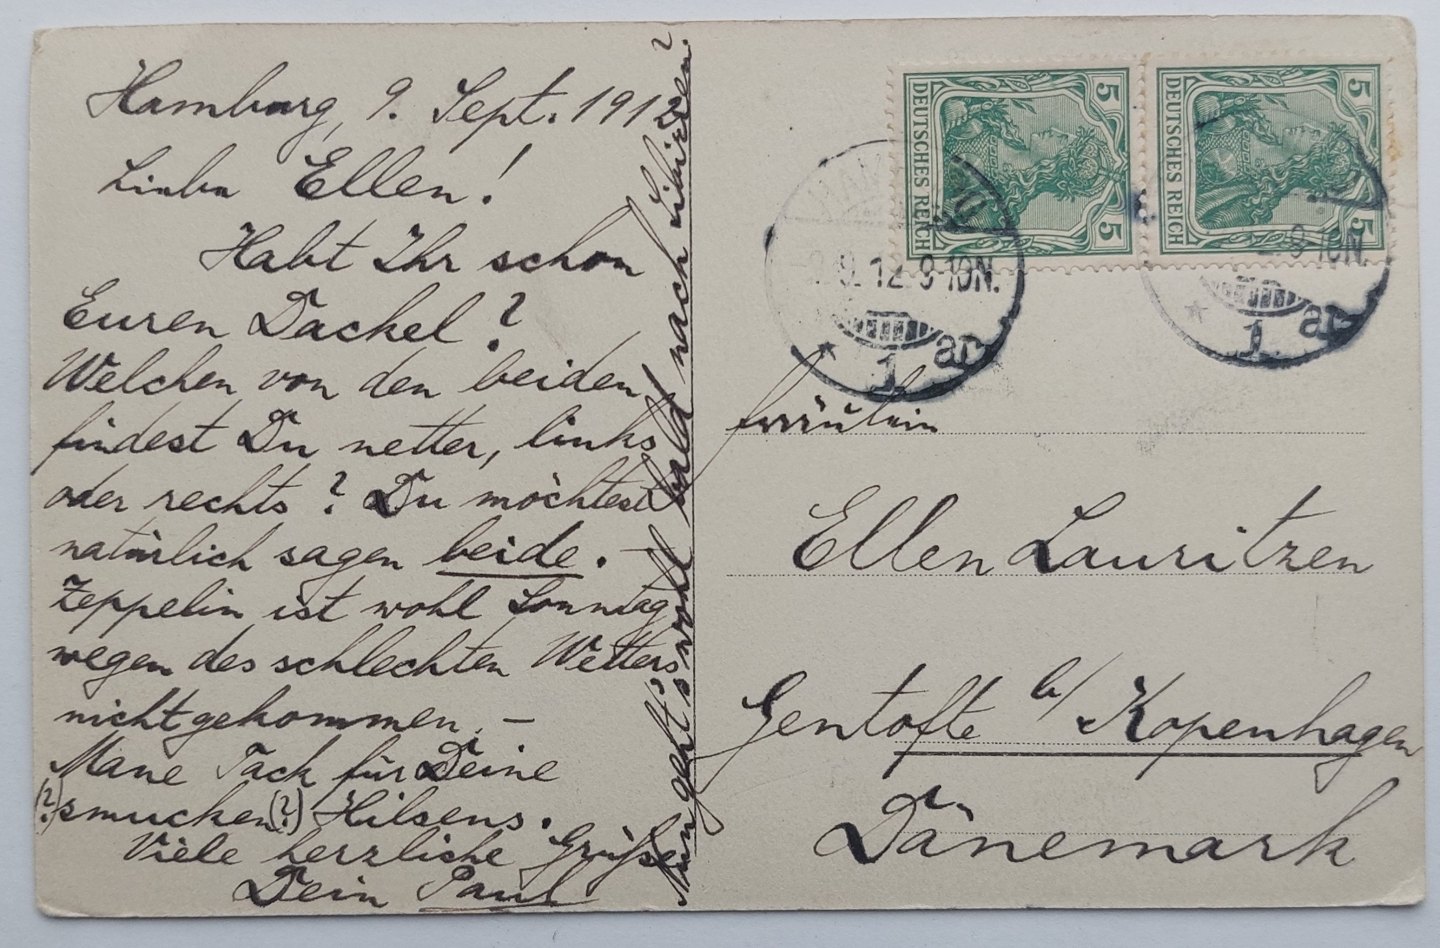 Hamburg, 9. Sept. 1912
Liebe Ellen!
Habt Ihr schon
Euren Dackel?
Welchen von den beiden
findest Du netter, links
oder rechts? Du möchtest
natürlich sagen beide. –
Zeppelin ist wohl Sonntag
wegen des schlechten Wetters
nicht gekommen. –
Mane Tack für Deine
(?) smucken (?) Hilsens.
Viele herzliche Grüße
Dein Paul
Nun geht's wohl bald nach
DEUTSCHES REICH
5
5
DEUTSCHES REICH
5
5
HAMBURG
9.9.12.9-10N.
* 1 ar
9-10N.
* 1 ar
Fräulein
Ellen Lauritzen
Gentofte b/ Kopenhagen
Dänemark